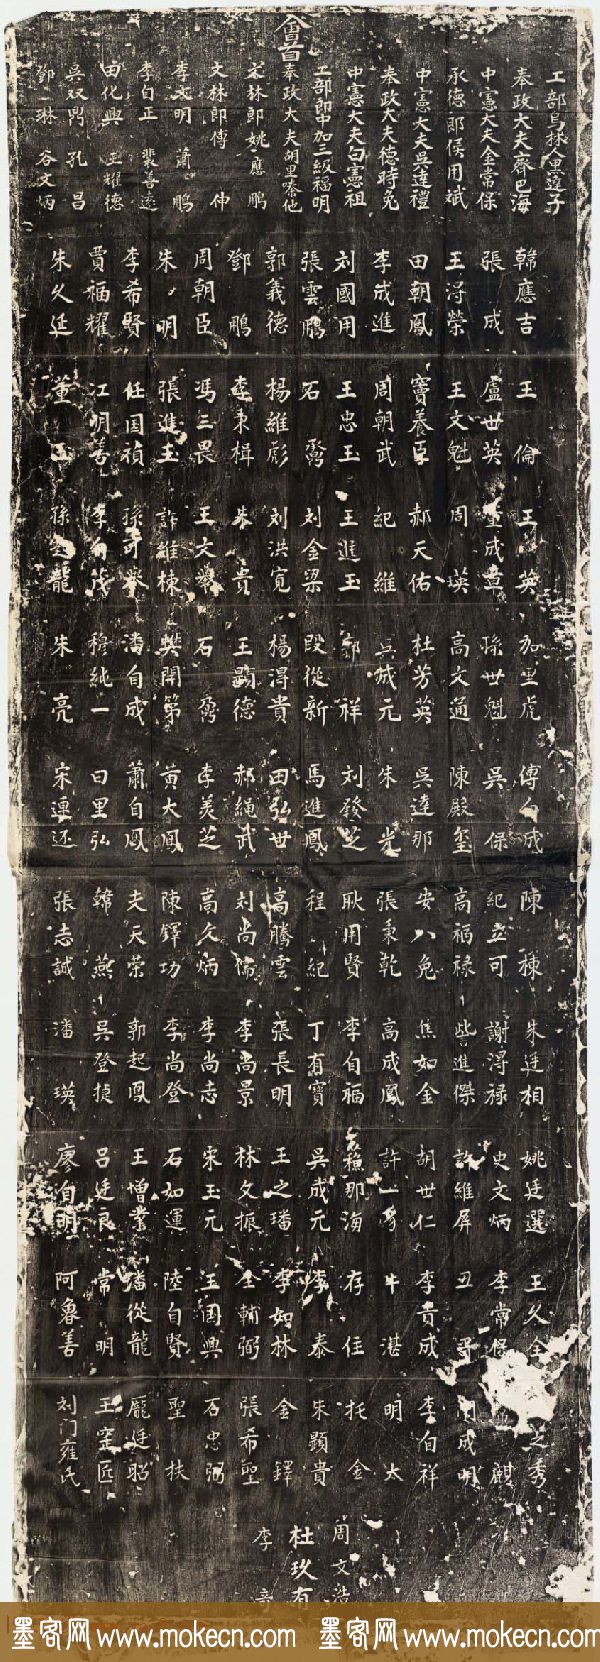 會首
奉政大夫齊巴海
中憲大夫金常保
承德郎侯用斌
中憲大夫吳達禮
奉政大夫德時兔
中憲大夫白憲祖
工部郎中加三級福明
奉政大夫胡里喀他
文林郎姚應鵬
文林郎傅 伸
李文明 蕭 鵬
李自正 裴善述
田化興 王耀德
吳双鼎 孔 昌
鄧 琳 谷文炳
韓應吉 張 成 王淂榮 田朝鳳 李成進 刘國用 張雲鵬 郭義德 鄧 鵬 周朝臣 朱 明 李希賢 賈福耀 朱久廷
王 倫 盧世英 王文魁 竇養臣 周朝武 王忠玉 石 楊維彪 李東楫 馮三畏 張進玉 任国禎 江明善 董 玉
王 英 成 周 英 郝天佑 紀 維 王進玉 刘金梁 刘洪寬 朱 貴 王文 許維棟 孫 李 茂 孫 龍
加里虎 孫世魁 高文通 杜芳英 吳成元 郭 祥 段從新 楊淂貴 王顯德 石 樊開第 潘自成 穆純一 朱 亮
傅 成 吳 保 陳殿璽 吳達那 朱 光 刘發芝 馬進鳳 田弘世 郝繩武 李美芝 黄大鳳 蕭自鳳 白里弘 宋連还
陳 棟 紀立可 高福祿 安八兔 張秉乾 耿用賢 程 紀 高騰雲 刘尚 高久炳 陳鐸功 夫天荣 韓 燕 張志誠
朱廷相 謝淂祿 柴進傑 焦如金 高成鳳 李自福 丁有寶 張長明 李尚景 李尚志 李尚登 郭起鳳 吳登 潘 瑛
姚廷選 史文炳 許維屏 胡世仁 許一 那海 吳成元 王之璠 林文振 宋玉元 石如運 王增業 呂廷良 廖自明
王久全 李常保 丑 李貢成 牛 湛 存 住 李 泰 李如林 全輔弼 王國興 陸自賢 潘從龍 常 明 阿魯善
之秀 麒 周成明 李自祥 明 太 托 金 朱顯貴 金 鐸 張希聖 石忠弼 聖 扶 龐廷昭 王定匠 刘门雍氏
周文浩
杜玖有
李 章
墨客网 www.mokecn.com 墨客网 www.mokecn.com